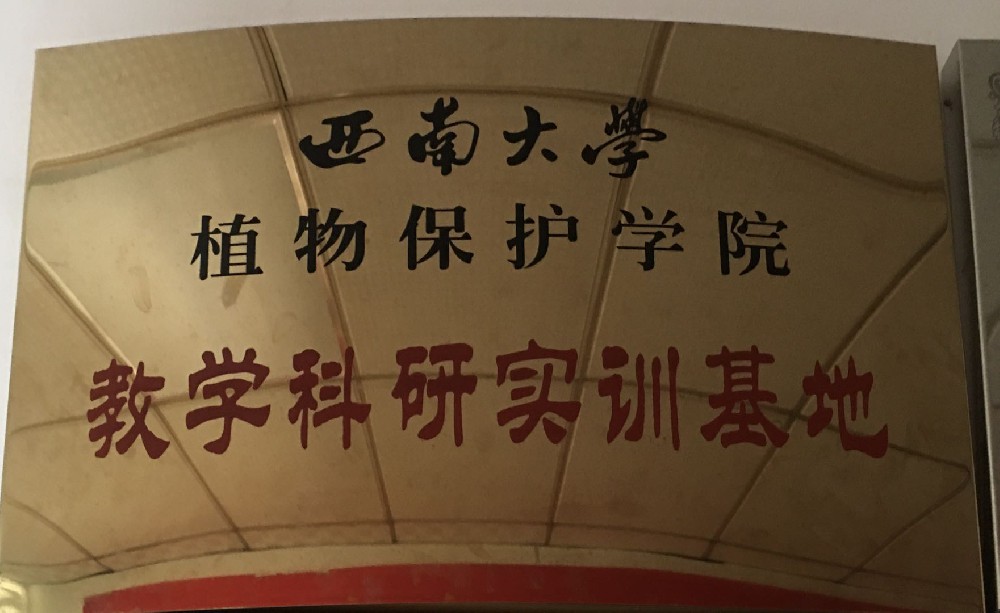 西南大學
植物保护学院
教学科研实训基地